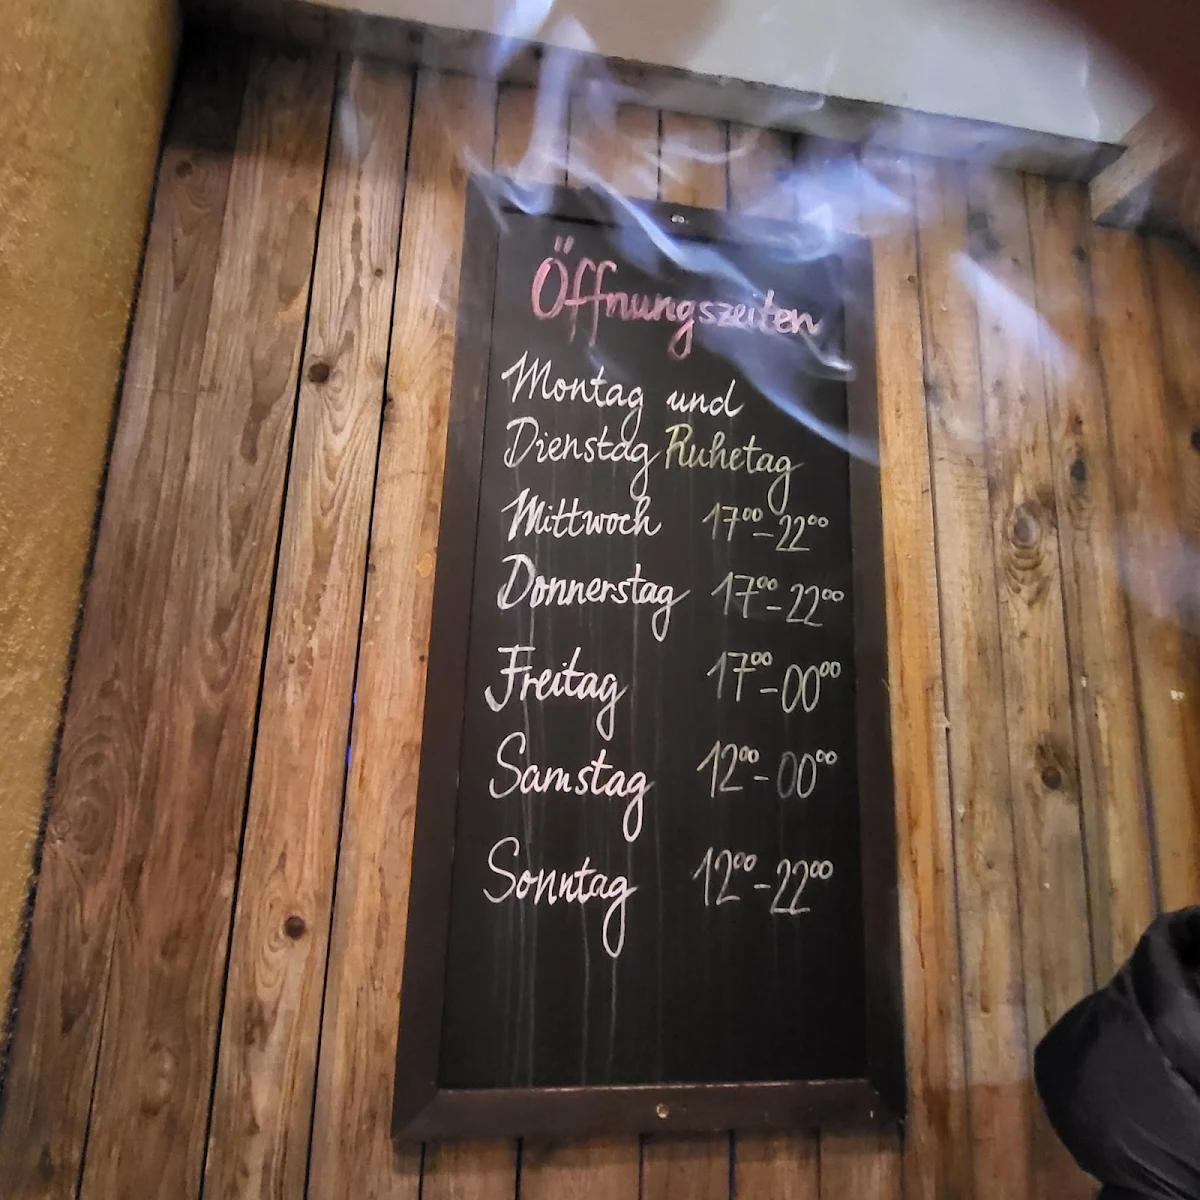 Öffnungszeiten
Montag und
Dienstag Ruhetag
Mittwoch 17⁰⁰-22⁰⁰
Donnerstag 17⁰⁰-22⁰⁰
Freitag 17⁰⁰-00⁰⁰
Samstag 12⁰⁰-00⁰⁰
Sonntag 12⁰⁰-22⁰⁰